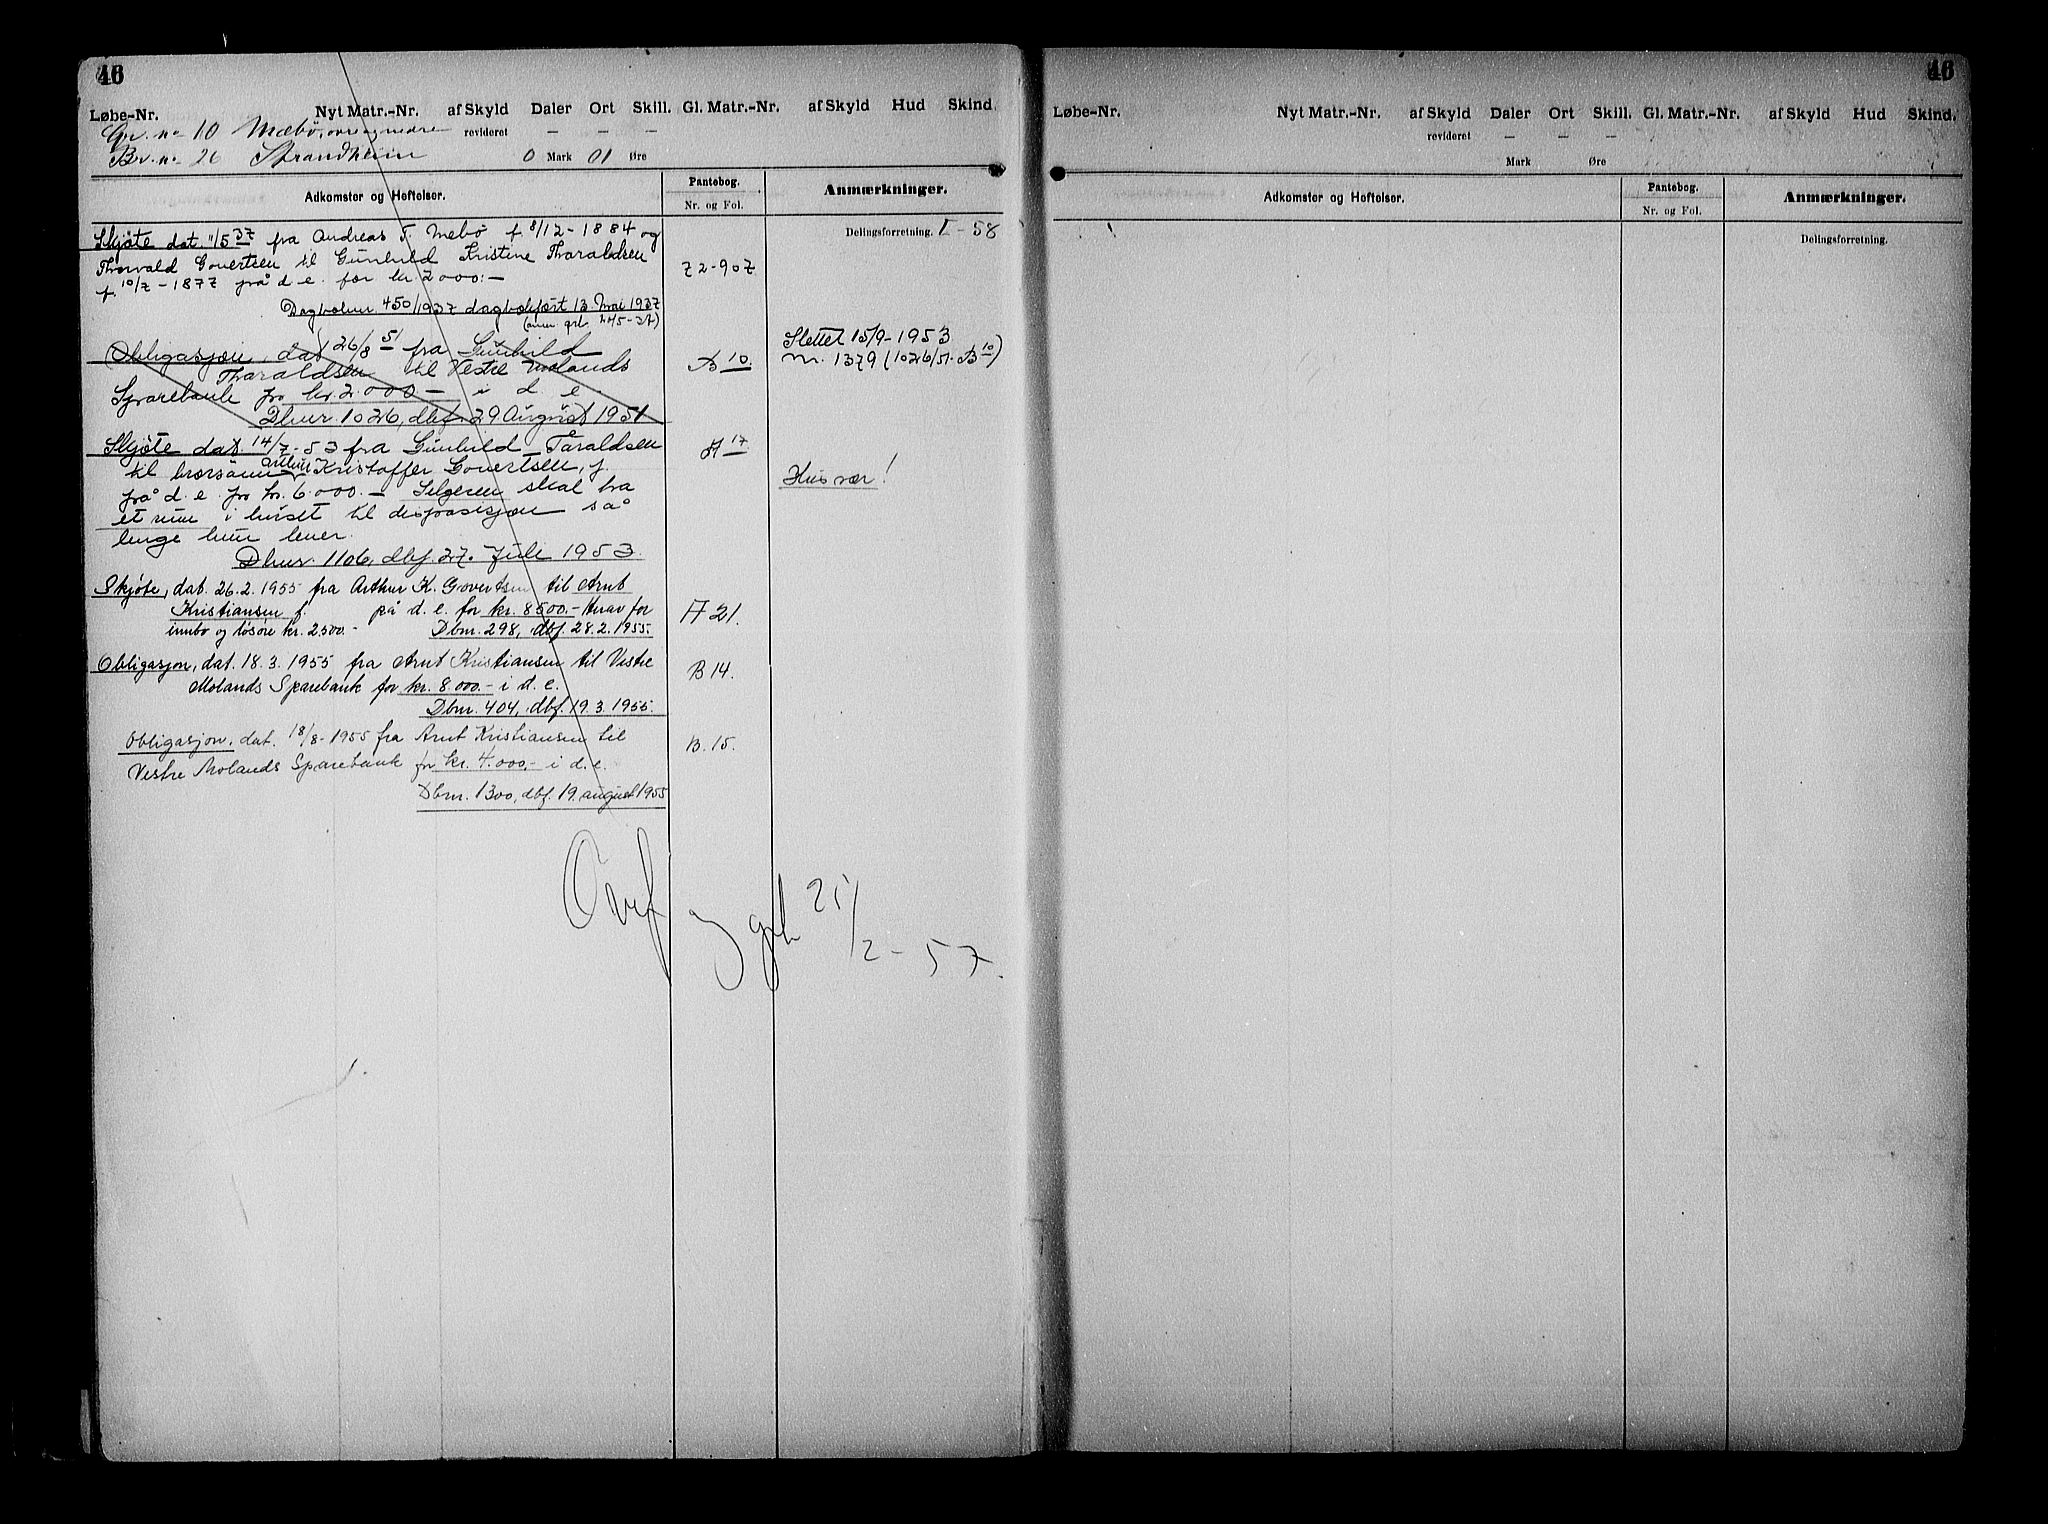 46
Løbe-Nr. Nyt Matr.-Nr. af Skyld Daler Ort Skill. Gl. Matr.-Nr. af Skyld Hud Skind.
Gr. no 10 Mæbø, øvre og nedre revideret — — —
Br. no 26 Strandheim 0 Mark 01 Øre
Adkomster og Heftelser. Pantebog. Nr. og Fol. Anmærkninger.
Delingsforretning. I - 58
Skjøte dat. 11/5 37 fra Andreas T. Mebø f 8/12-1884 og
Thorvald Govertsen til Gunhild Kristine Tharaldsen
f. 10/7-1877 på d e. for kr. 2000:- 72-907
Dagboknr 450/1937 dagbokført 13. Mai 1937
Obligasjon, dat 26/8 51 fra Gunhild
Tharaldsen til Vestre Molands
Sparebank for kr. 2.000 — i d e
Dbnr. 1026, dbf. 29 August 1951
B 10.
Slettet 15/9-1953
nr. 1379 (1026/51-B10)
Skjøte dat. 14/7-53 fra Gunhild Taraldsen A 17
til brorsønn Arthur Kristoffer Govertsen, f.
på d. e. for kr. 6.000.- Selgeren skal ha
et rum i huset til disposisjon så
lenge hun lever.
Husvær!
Dbnr. 1106, dbf. 27. Juli 1953.
Skjøte, dat. 26.2.1955 fra Arthur K. Govertsen til Arnt
Kristiansen f. på d. e. for kr. 8500.- Herav for A 21.
innbo og løsøre kr. 2.500.- Dbnr. 298, dbf. 28.2.1955.
Obligasjon, dat. 18.3.1955 fra Arnt Kristiansen til Vestre B 14.
Molands Sparebank for kr. 8.000.- i d. e.
Dbnr. 404, dbf. 19.3.1955.
Obligasjon, dat. 18/8-1955 fra Arnt Kristiansen til B. 15.
Vestre Molands Sparebank for kr. 4.000,- i d.e.
Dbnr. 1300, dbf. 19. august 1955
Overf 25/2-57.
46
Løbe-Nr. Nyt Matr.-Nr. af Skyld Daler Ort Skill. Gl. Matr.-Nr. af Skyld Hud Skind.
revideret — — —
Mark Øre
Adkomster og Heftelser. Pantebog. Nr. og Fol. Anmærkninger.
Delingsforretning.